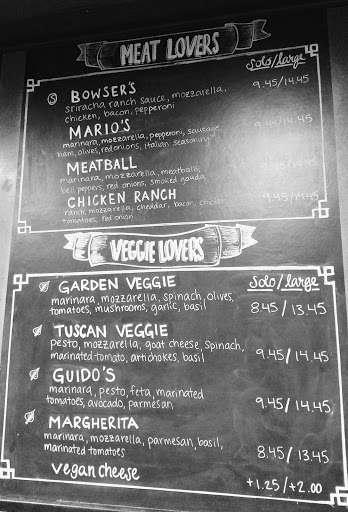 MEAT LOVERS
Solo/large
S BOWSER'S 9.45/14.45
sriracha ranch sauce, mozzarella,
chicken, bacon, pepperoni
MARIO'S 9.45/14.45
marinara, mozzarella, pepperoni, sausage,
ham, olives, red onions, italian seasoning
MEATBALL 9.45/14.45
marinara, mozzarella, meatballs,
bell peppers, red onions, smoked gouda
CHICKEN RANCH 9.45/14.45
ranch, mozzarella, cheddar, bacon, chicken,
tomatoes, red onion
VEGGIE LOVERS
Solo/large
GARDEN VEGGIE
marinara, mozzarella, spinach, olives,
tomatoes, mushrooms, garlic, basil 8.45/13.45
TUSCAN VEGGIE
pesto, mozzarella, goat cheese, spinach,
marinated tomato, artichokes, basil 9.45/14.45
GUIDO'S
marinara, pesto, feta, marinated
tomatoes, avocado, parmesan 9.45/14.45
MARGHERITA
marinara, mozzarella, parmesan, basil,
marinated tomatoes 8.45/13.45
vegan cheese +1.25/+2.00